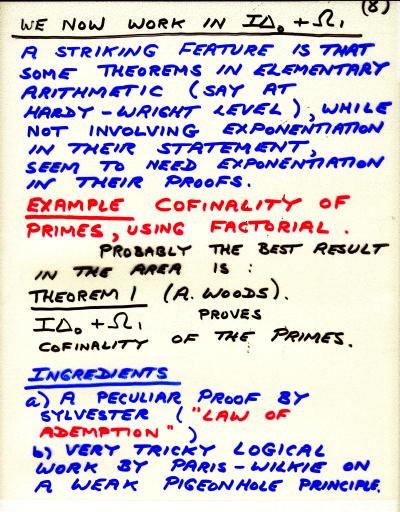 (8)
WE NOW WORK IN IΔ₀ + Ω₁
A STRIKING FEATURE IS THAT
SOME THEOREMS IN ELEMENTARY
ARITHMETIC (SAY AT
HARDY-WRIGHT LEVEL), WHILE
NOT INVOLVING EXPONENTIATION
IN THEIR STATEMENT,
SEEM TO NEED EXPONENTIATION
IN THEIR PROOFS.
EXAMPLE COFINALITY OF
PRIMES, USING FACTORIAL.
PROBABLY THE BEST RESULT
IN THE AREA IS :
THEOREM 1 (A. WOODS).
IΔ₀ + Ω₁ PROVES
COFINALITY OF THE PRIMES.
INGREDIENTS
a) A PECULIAR PROOF BY
SYLVESTER ("LAW OF
ADEMPTION")
b) VERY TRICKY LOGICAL
WORK BY PARIS-WILKIE ON
A WEAK PIGEONHOLE PRINCIPLE.